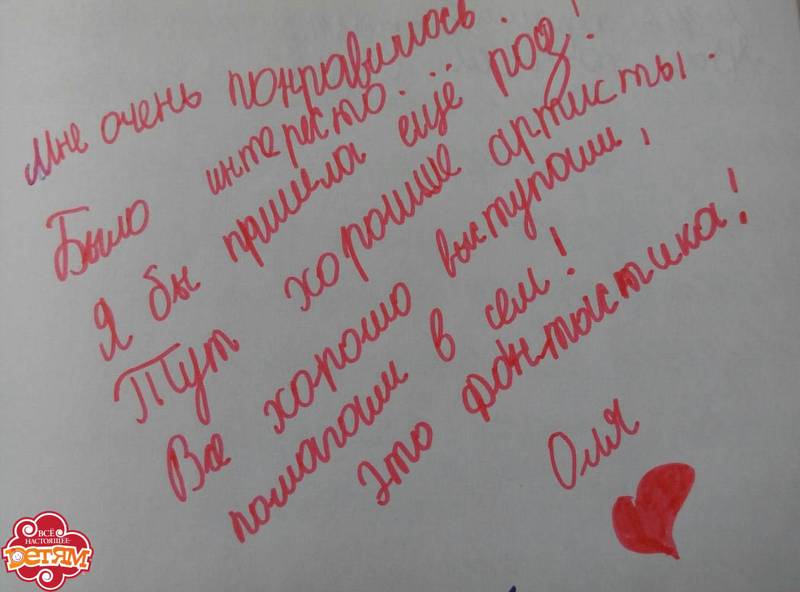 Мне очень понравилось.
Было интересто...
Я бы пришла ещё роз!
Тут хорошие артисты.
Все хорошо выступали,
помагали в сем!
Это фонтыстика!
Оля
ВСЁ
НАСТОЯЩЕЕ
ДЕТЯМ